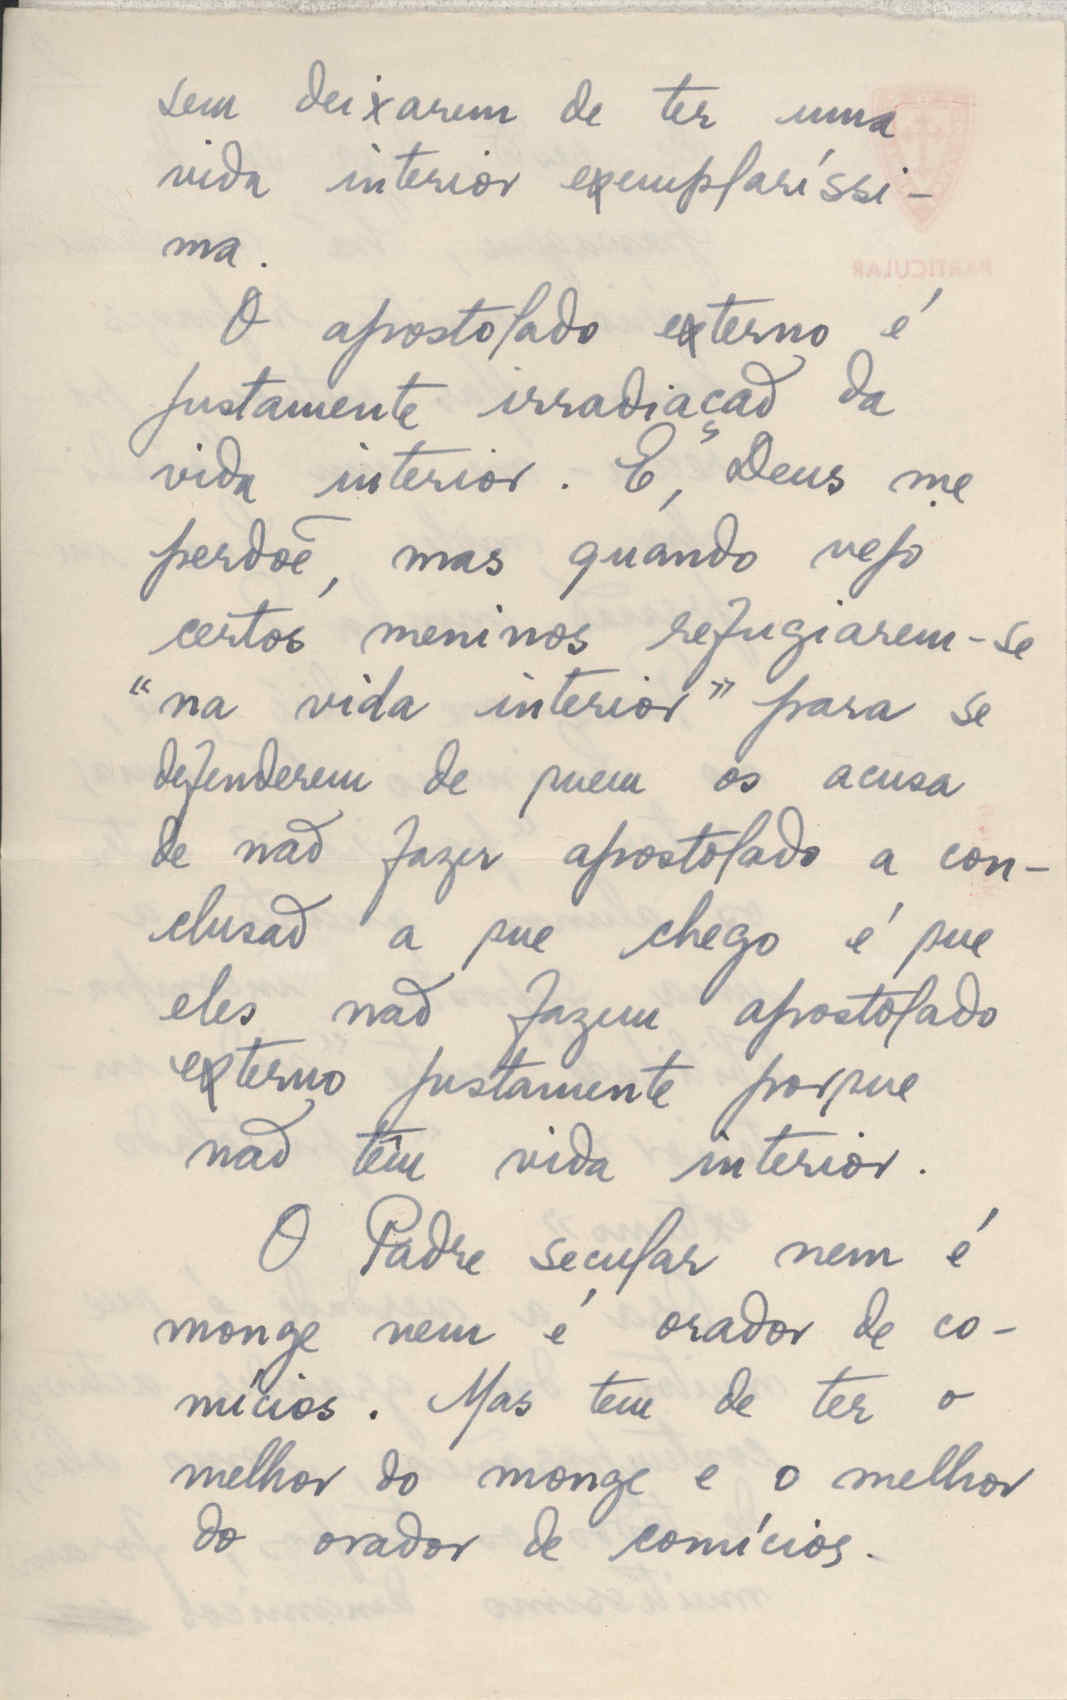 sem deixarem de ter uma
vida interior exemplaríssi-
ma.
O apostolado externo é
justamente irradiação da
vida interior. E, Deus me
perdoe, mas quando vejo
certos meninos refugiarem-se
“na vida interior” para se
defenderem de quem os acusa
de não fazer apostolado a con-
clusão a que chego é que
eles não fazem apostolado
externo justamente porque
não têm vida interior.
O Padre secular nem é
monge nem é orador de co-
mícios. Mas tem de ter o
melhor do monge e o melhor
do orador de comícios.
PARTICULAR